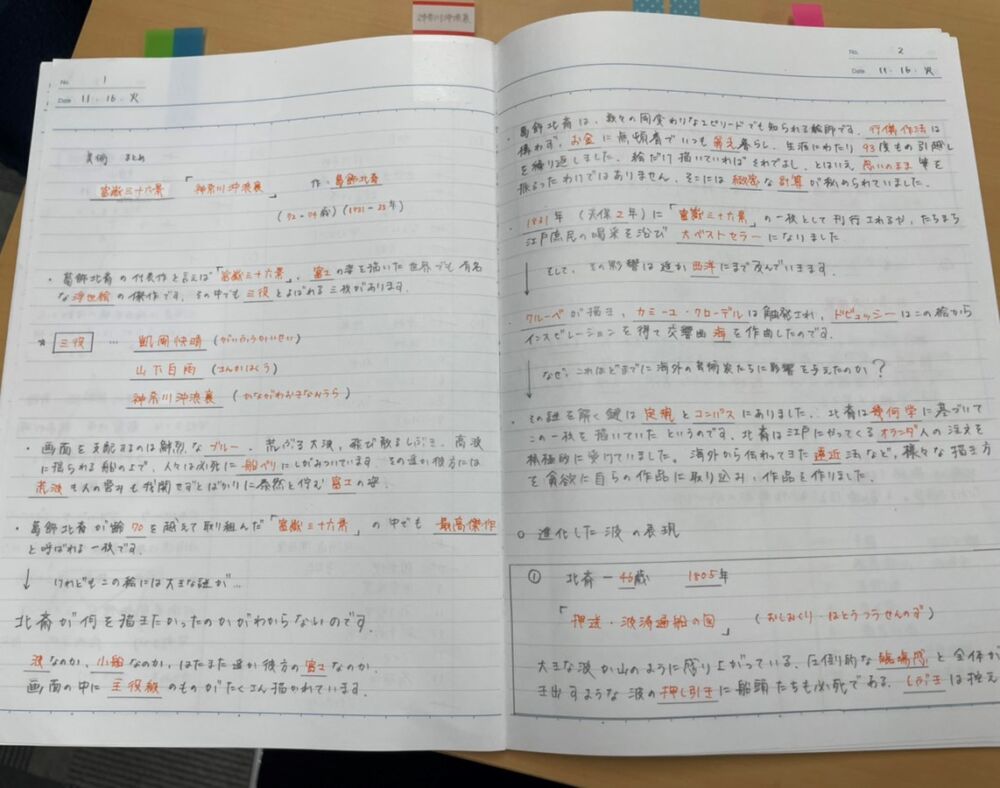 神奈川沖浪裏
No. 1
Date 11・16・火
美術 まとめ
富嶽三十六景 「神奈川沖浪裏」 作・葛飾北斎
(72-74歳)(1831-33年)
・葛飾北斎の代表作と言えば「富嶽三十六景」、富士の姿を描いた世界でも有名
な浮世絵の傑作です。その中でも三役とよばれる三枚があります。
☆ 三役 … 凱風快晴 (がいふうかいせい)
山下白雨 (さんかはくう)
神奈川沖浪裏 (かながわおきなみうら)
・画面を支配するのは鮮烈なブルー。荒ぶる大波、飛び散るしぶき。高波
に揺られる船の上で、人々は必死に船べりにしがみついています。その遥か彼方には
荒波も人の営みも我関せずとばかりに泰然と佇む富士の姿。
・葛飾北斎が齢70を越えて取り組んだ「富嶽三十六景」の中でも最高傑作
と呼ばれる一枚です。
↓ けれどもこの絵には大きな謎が…
北斎が何を描きたかったのかがわからないのです。
波なのか、小船なのか、はたまた遥か彼方の富士なのか。
画面の中に主役級のものがたくさん描かれています。
No. 2
Date 11・16・火
・葛飾北斎は、数々の風変わりなエピソードでも知られる絵師です。行儀作法は
構わず、お金に無頓着でいつも貧乏暮らし。生涯にわたり93度もの引越し
を繰り返しました。絵だけ描いていればそれでよし。とはいえ、思いのまま筆を
振るったわけではありません。そこには緻密な計算が秘められていました。
・1831年 (天保2年)に「富嶽三十六景」の一枚として刊行されるが、たちまち
江戸庶民の喝采を浴び 大ベストセラーになりました
↓ そして、その影響は遥か西洋にまで及んでいきます。
・クールベが描き、カミーユ・クローデルは触発され、ドビュッシーはこの絵から
インスピレーションを得て交響曲海を作曲したのです。
↓ なぜ、これほどまでに海外の芸術家たちに影響を与えたのか?
・その謎を解く鍵は定規とコンパスにありました。北斎は幾何学に基づいて
この一枚を描いていたというのです。北斎は江戸にやってくるオランダ人の注文を
積極的に受けていました。海外から伝わってきた遠近法など、様々な描き方
を貪欲に自らの作品に取り込み、作品を作りました。
○ 進化した波の表現
① 北斎-46歳 1805年
「押送・波濤通船の図」 (おしおくり・はとうつうせんのず)
大きな波が山のように盛り上がっている。圧倒的な臨場感と全体が
き出すような波の押し引きに船頭たちも必死である。しぶきは控え